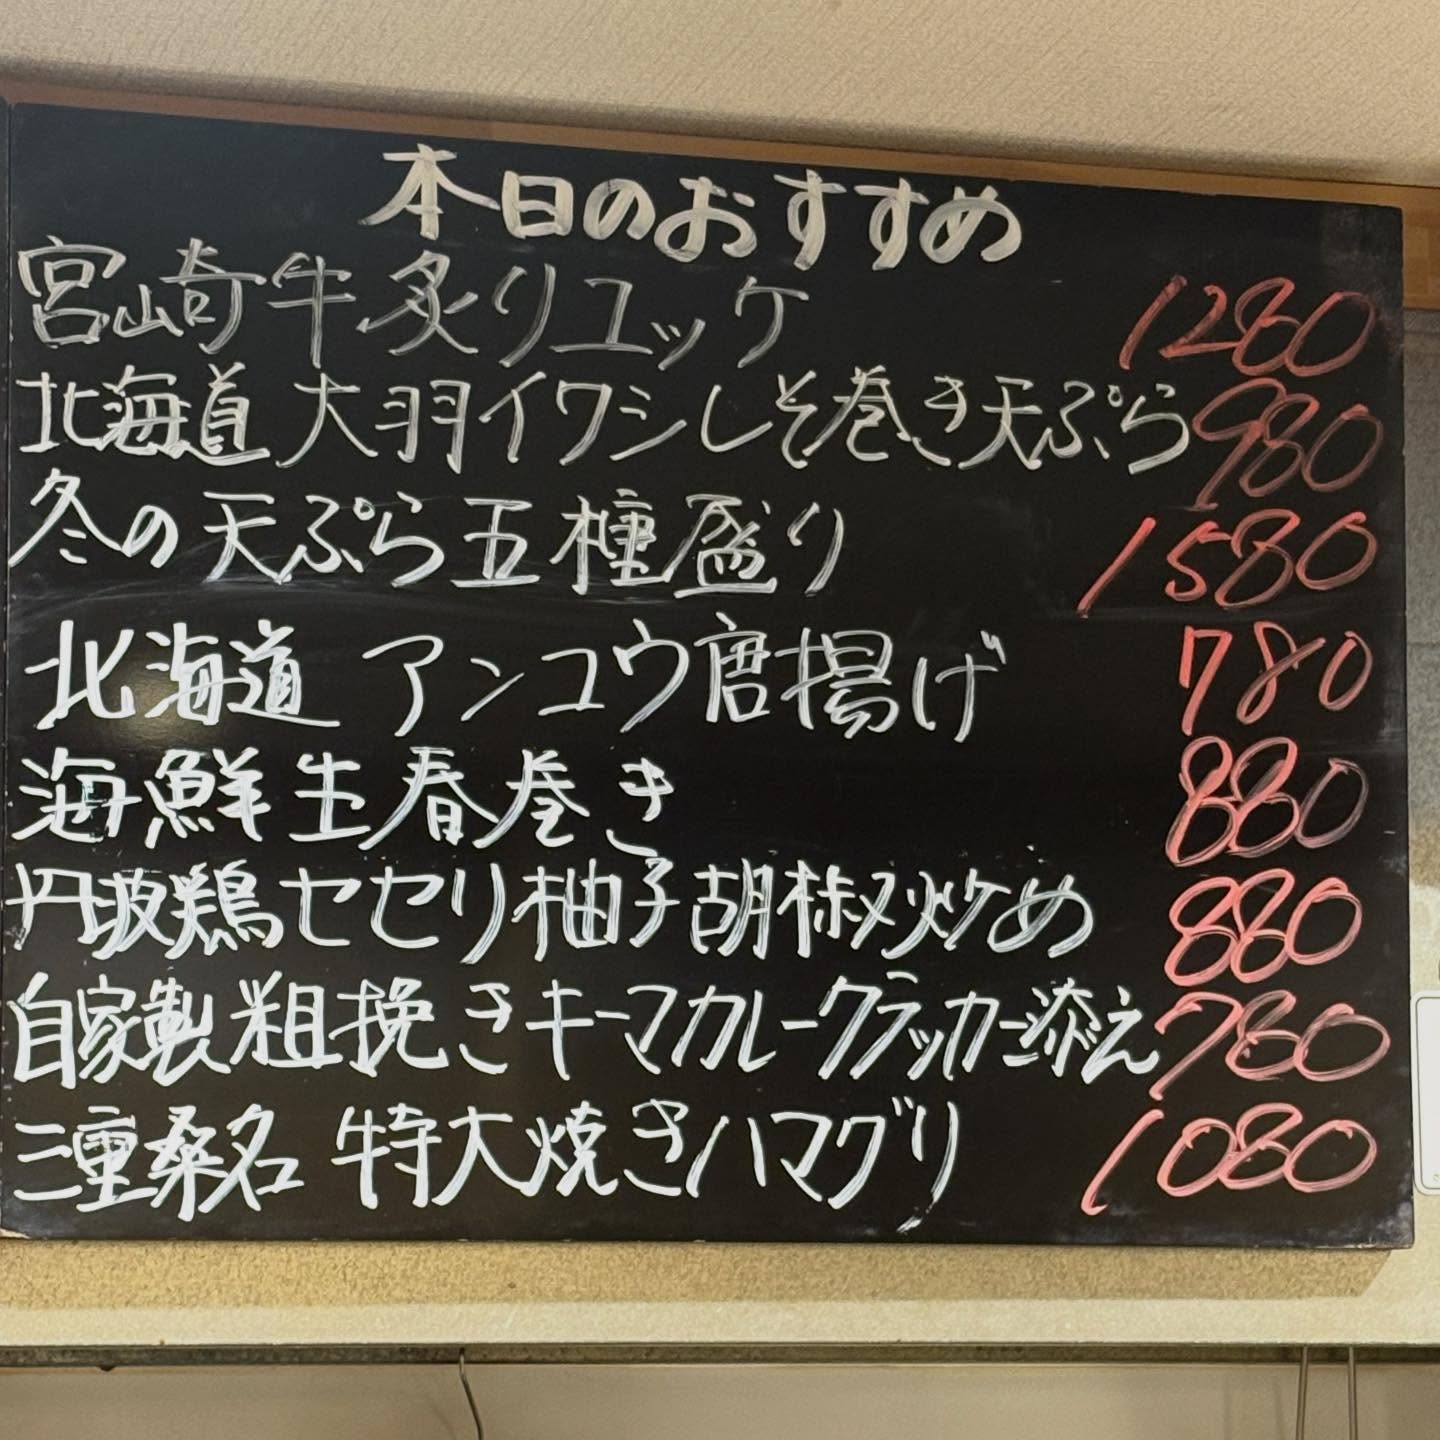 本日のおすすめ
宮崎牛炙りユッケ 1280
北海道 大羽イワシしそ巻き天ぷら 980
冬の天ぷら五種盛り 1580
北海道 アンコウ唐揚げ 780
海鮮生春巻き 880
丹波鶏セセリ柚子胡椒炒め 880
自家製粗挽きキーマカレークラッカー添え 780
三重桑名 特大焼きハマグリ 1080